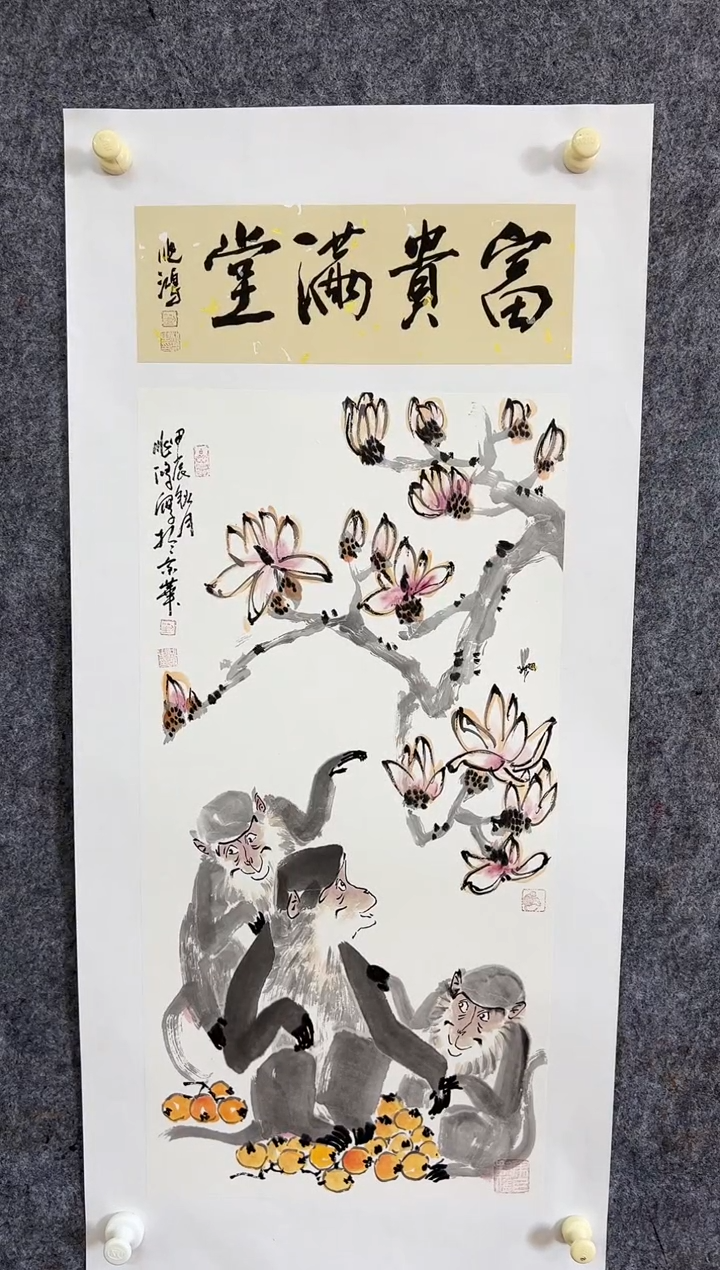 富貴滿堂
兆鴻
甲辰秋月
兆鴻寫於京華